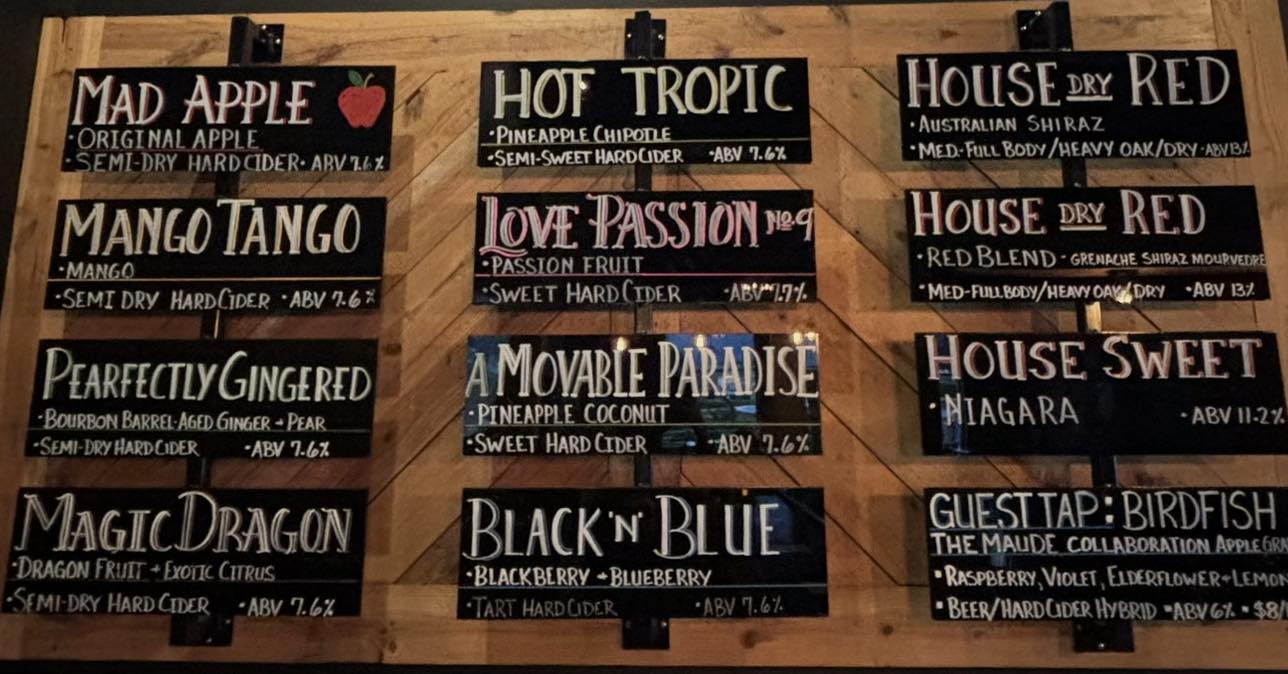 MAD APPLE
• ORIGINAL APPLE
• SEMI-DRY HARD CIDER • ABV 7.6%
MANGO TANGO
• MANGO
• SEMI DRY HARD CIDER • ABV 7.6%
PEARFECTLY GINGERED
• BOURBON BARREL-AGED GINGER + PEAR
• SEMI-DRY HARD CIDER • ABV 7.6%
MAGIC DRAGON
• DRAGON FRUIT + EXOTIC CITRUS
• SEMI-DRY HARD CIDER • ABV 7.6%
HOT TROPIC
• PINEAPPLE CHIPOTLE
• SEMI-SWEET HARD CIDER • ABV 7.6%
LOVE PASSION No. 9
• PASSION FRUIT
• SWEET HARD CIDER • ABV 7.7%
A MOVABLE PARADISE
• PINEAPPLE COCONUT
• SWEET HARD CIDER • ABV 7.6%
BLACK 'N' BLUE
• BLACKBERRY + BLUEBERRY
• TART HARD CIDER • ABV 7.6%
HOUSE DRY RED
• AUSTRALIAN SHIRAZ
• MED-FULL BODY/HEAVY OAK/DRY • ABV 13%
HOUSE DRY RED
• RED BLEND - GRENACHE SHIRAZ MOURVEDRE
• MED-FULL BODY/HEAVY OAK/DRY • ABV 13%
HOUSE SWEET
• NIAGARA • ABV 11.2%
GUEST TAP: BIRDFISH
THE MAUDE COLLABORATION APPLE
• RASPBERRY, VIOLET, ELDERFLOWER + LEMON
• BEER/HARD CIDER HYBRID • ABV 6% • $8/